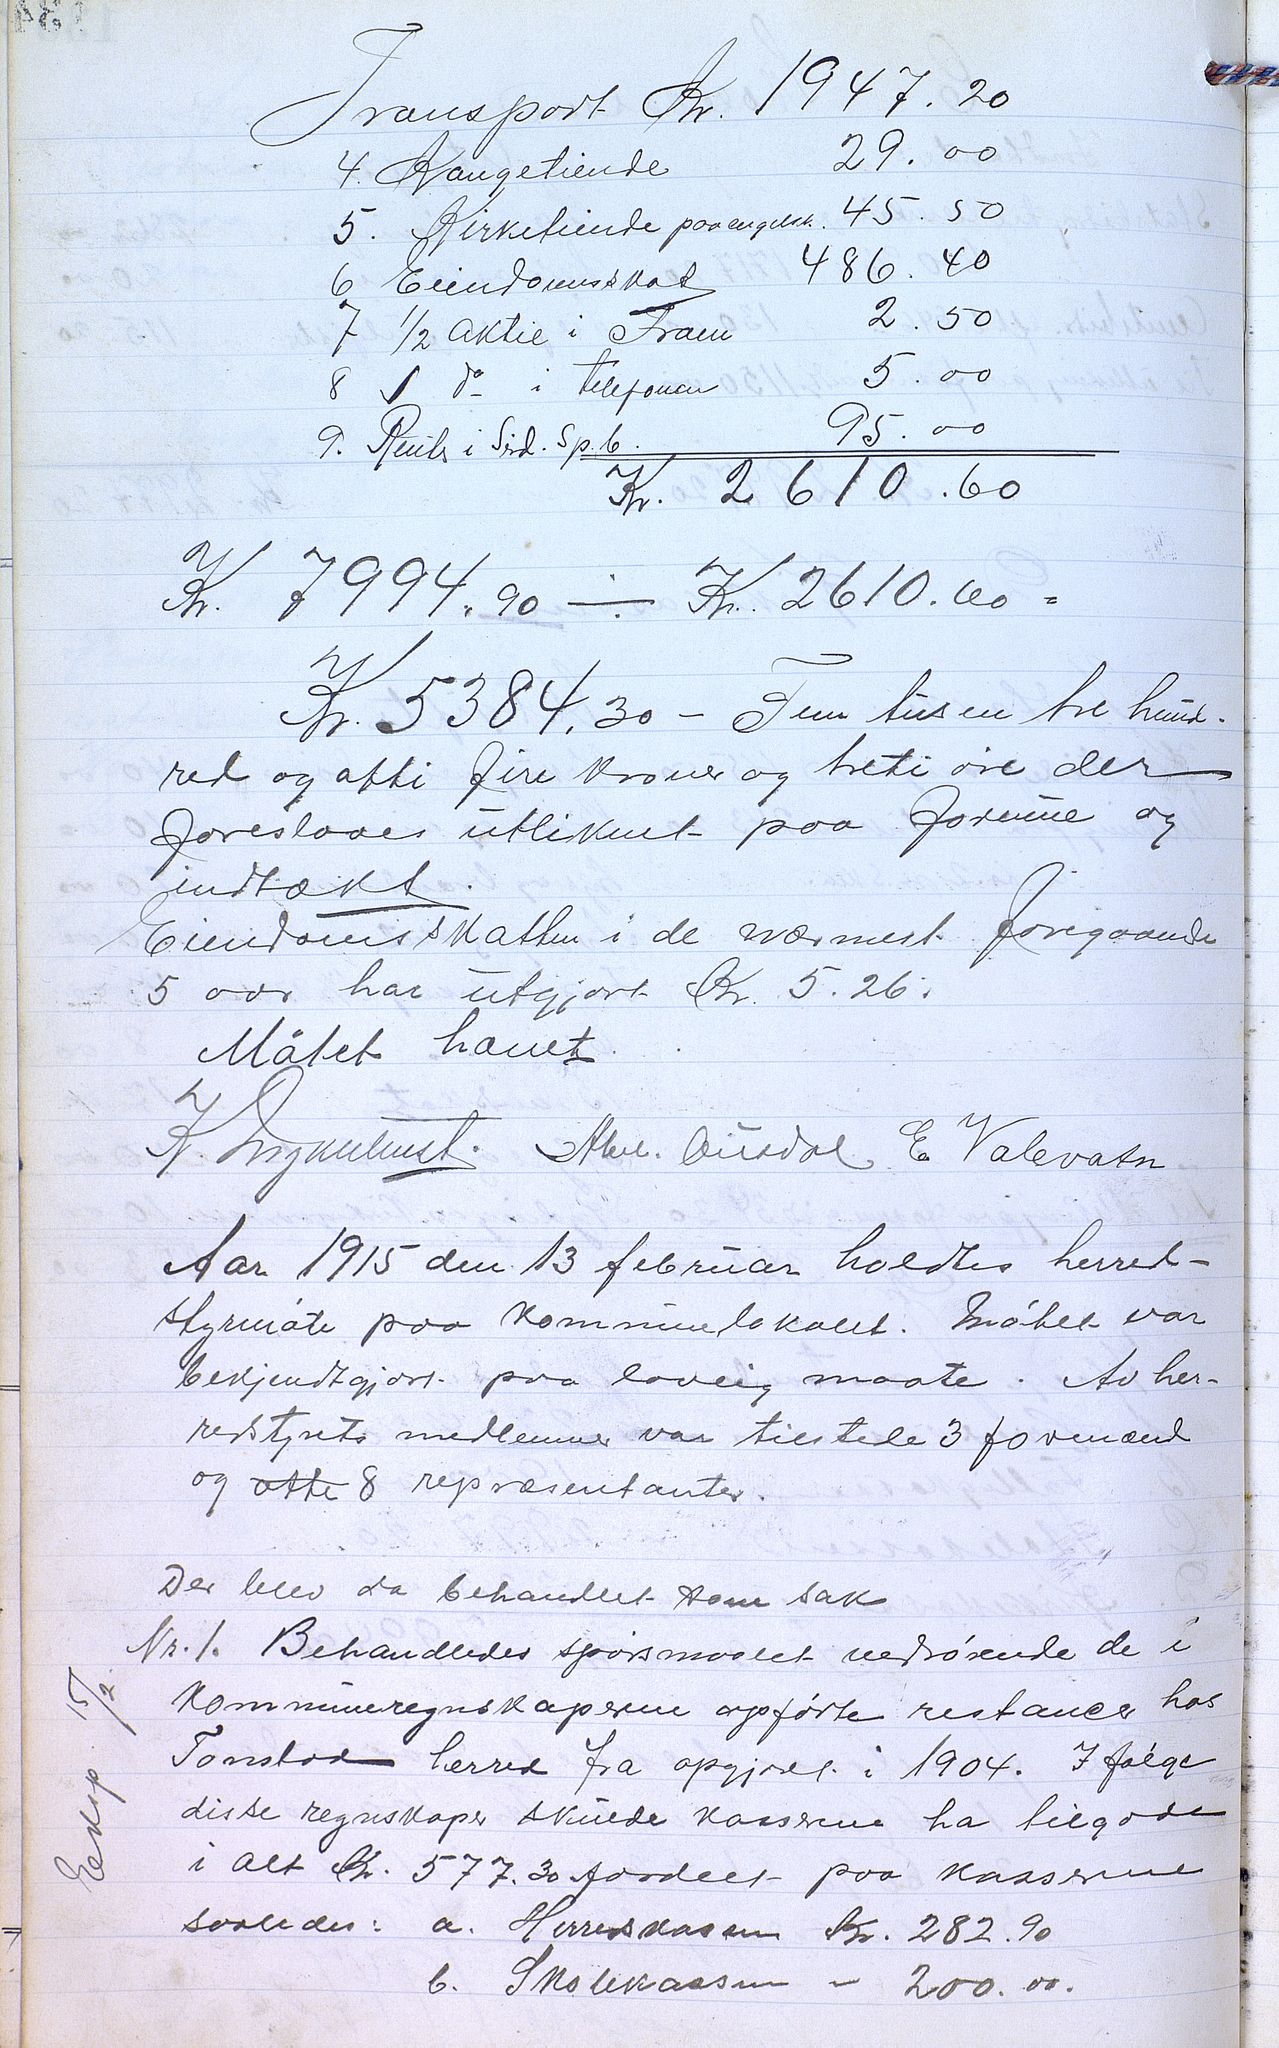 Transport Kr. 1947.20
4. Kongetiende 29.00
5. Kirketiende paa engelsk. 45.50
6 Eiendomsskat 486.40
7 1/2 aktie i Fram 2.50
8 1 do i telefonen 5.00
9. Renter i Sird. Spb. 95.00
Kr. 2610.60
Kr. 7994.90 ÷ Kr. 2610.60 =
Kr. 5384.30 - Fem tusen tre hund-
red og otti fire kroner og treti øre der
foreslaaes utliknet paa formue og
indtækt.
Eiendomsskatten i de nærmest foregaaende
5 aar har utgjort Kr. 5.26.
Møtet hævet.
Abr. Ousdal E Valevatn
Aar 1915 den 13 februar holdtes herred-
styrmøte paa kommunelokalet. Møtet var
bekjendtgjort paa lovlig maate. Av her-
redstyrets medlemmer var tilstede 3 formænd
og otte 8 repræsentanter.
Der blev da behandlet som sak
Nr. 1. Behandledes spørsmaalet vedrørende de i
kommuneregnskaperne opførte restancer hos
Tonstad herred fra opgjøret i 1904. Ifølge
disse regnskaper skulde kasserne ha tilgode
i alt Kr. 577.30 fordelt paa kasserne
saaledes: a. Herredskassen Kr. 282.90
b. Skolekassen - 200.00.
Ekskp 15/2